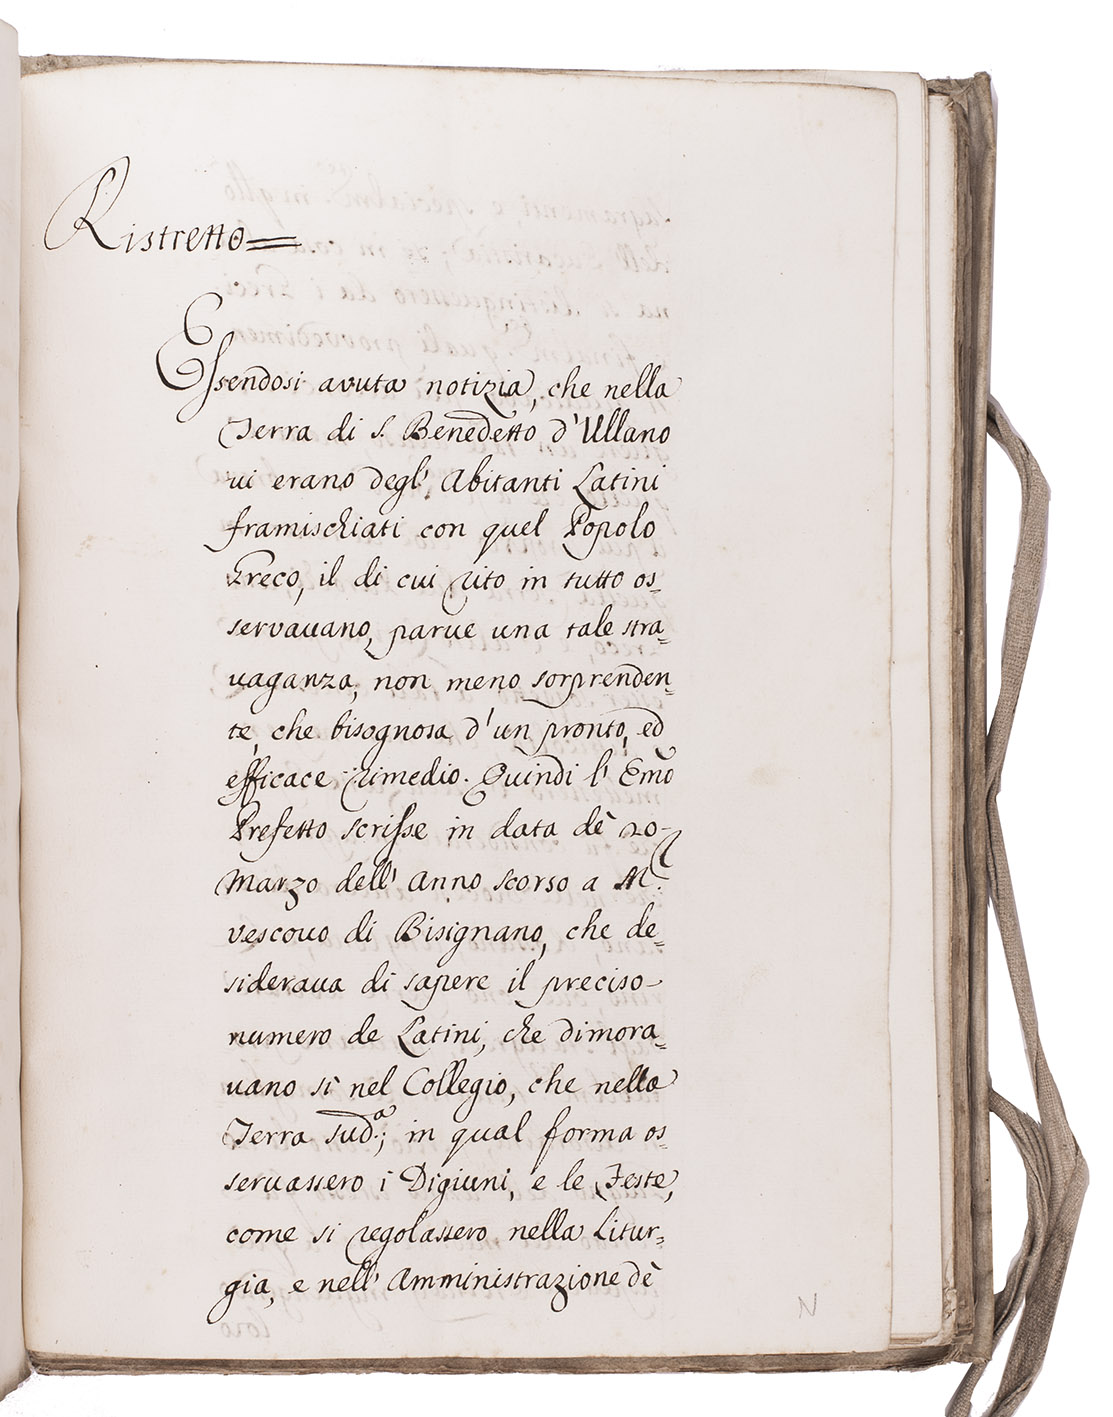 Ristretto=
Essendosi avuta notizia, che nella
Terra di S. Benedetto d'Ullano
vi erano degl' Abitanti Latini
framischiati con quel Popolo
Greco, il di cui rito in tutto os=
servavano, parve una tale stra=
vaganza, non meno sorprenden=
te, che bisognosa d'un pronto, ed
efficace rimedio. Quindi l'Emo
Prefetto scrisse in data dè 20
Marzo dell'Anno scorso a M.r
vescovo di Bisignano, che de=
siderava di sapere il preciso
numero de Latini, che dimora=
vano sì nel Collegio, che nella
Terra sud.a; in qual forma os=
servassero i Digiuni, e le Feste,
come si regolassero nella Litur=
gia, e nell'Amministrazione dè
N